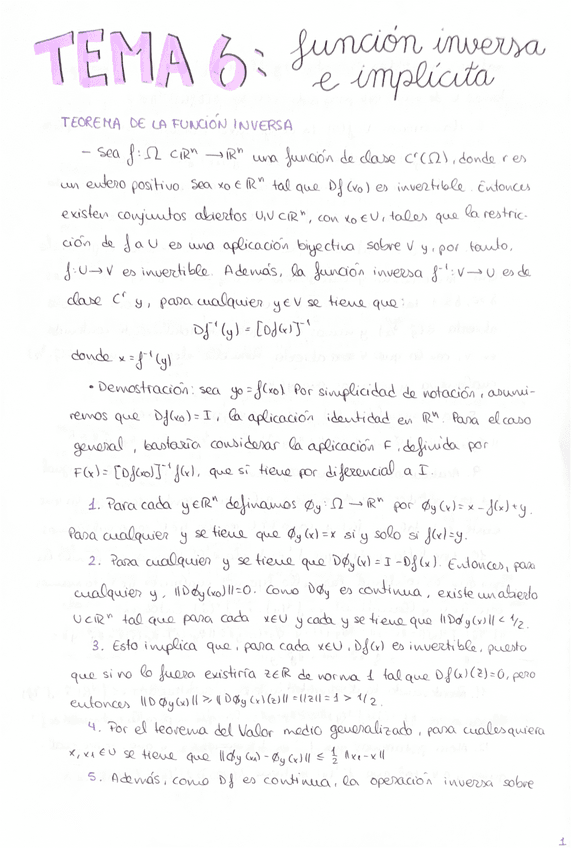 TEMA 6: función inversa
e implícita
TEOREMA DE LA FUNCIÓN INVERSA
- Sea f: Ω ⊂ ℝⁿ → ℝⁿ una función de clase Cʳ(Ω), donde r es
un entero positivo. Sea x₀ ∈ ℝⁿ tal que Df(x₀) es invertible. Entonces
existen conjuntos abiertos U, V ⊂ ℝⁿ, con x₀ ∈ U, tales que la restric-
ción de f a U es una aplicación biyectiva sobre V y, por tanto,
f: U → V es invertible. Además, la función inversa f⁻¹: V → U es de
clase Cʳ y, para cualquier y ∈ V se tiene que:
Df⁻¹(y) = [Df(x)]⁻¹
donde x = f⁻¹(y)
• Demostración: sea y₀ = f(x₀) Por simplicidad de notación, asumi-
remos que Df(x₀) = I, la aplicación identidad en ℝⁿ. Para el caso
general, bastaría considerar la aplicación F, definida por
F(x) = [Df(x₀)]⁻¹ f(x), que sí tiene por diferencial a I.
1. Para cada y ∈ ℝⁿ definamos Øy: Ω → ℝⁿ por Øy(x) = x - f(x) + y.
Para cualquier y se tiene que Øy(x) = x si y solo si f(x) = y.
2. Para cualquier y se tiene que DØy(x) = I - Df(x). Entonces, para
cualquier y, ||DØy(x₀)|| = 0. Como DØy es continua, existe un abierto
U ⊂ ℝⁿ tal que para cada x ∈ U y cada y se tiene que ||DØy(x)|| < 1/2.
3. Esto implica que, para cada x ∈ U, Df(x) es invertible, puesto
que si no lo fuera existiría z ∈ ℝ de norma 1 tal que Df(x)(z) = 0, pero
entonces ||DØy(x)|| ≥ ||DØy(x)(z)|| = ||z|| = 1 > 1/2.
4. Por el teorema del Valor medio generalizado, para cualesquiera
x, x₁ ∈ U se tiene que ||Øy(x₁) - Øy(x)|| ≤ 1/2 ||x₁ - x||
5. Además, como Df es continua, la operación inversa sobre
1